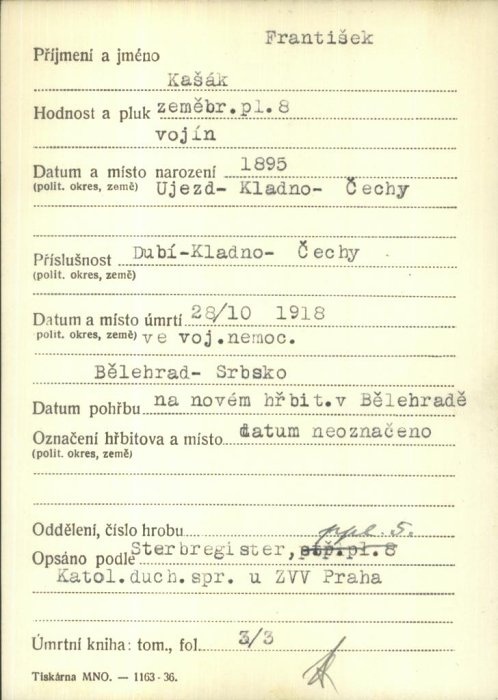 František
Příjmení a jméno
Kašák
Hodnost a pluk zeměbr.pl.8
vojín
Datum a místo narození 1895
(polit. okres, země) Ujezd- Kladno- Čechy
Příslušnost Dubí-Kladno- Čechy
(polit. okres, země)
Datum a místo úmrtí 28/10 1918
polit. okres, země) ve voj.nemoc.
Bělehrad- Srbsko
Datum pohřbu na novém hřbit.v Bělehradě
Označení hřbitova a místo datum neoznačeno
(polit. okres, země)
Oddělení, číslo hrobu
Opsáno podle Sterbregister, stř.pl.8
Katol.duch.spr. u ZVV Praha
Úmrtní kniha: tom., fol. 3/3
Tiskárna MNO. — 1163-36.